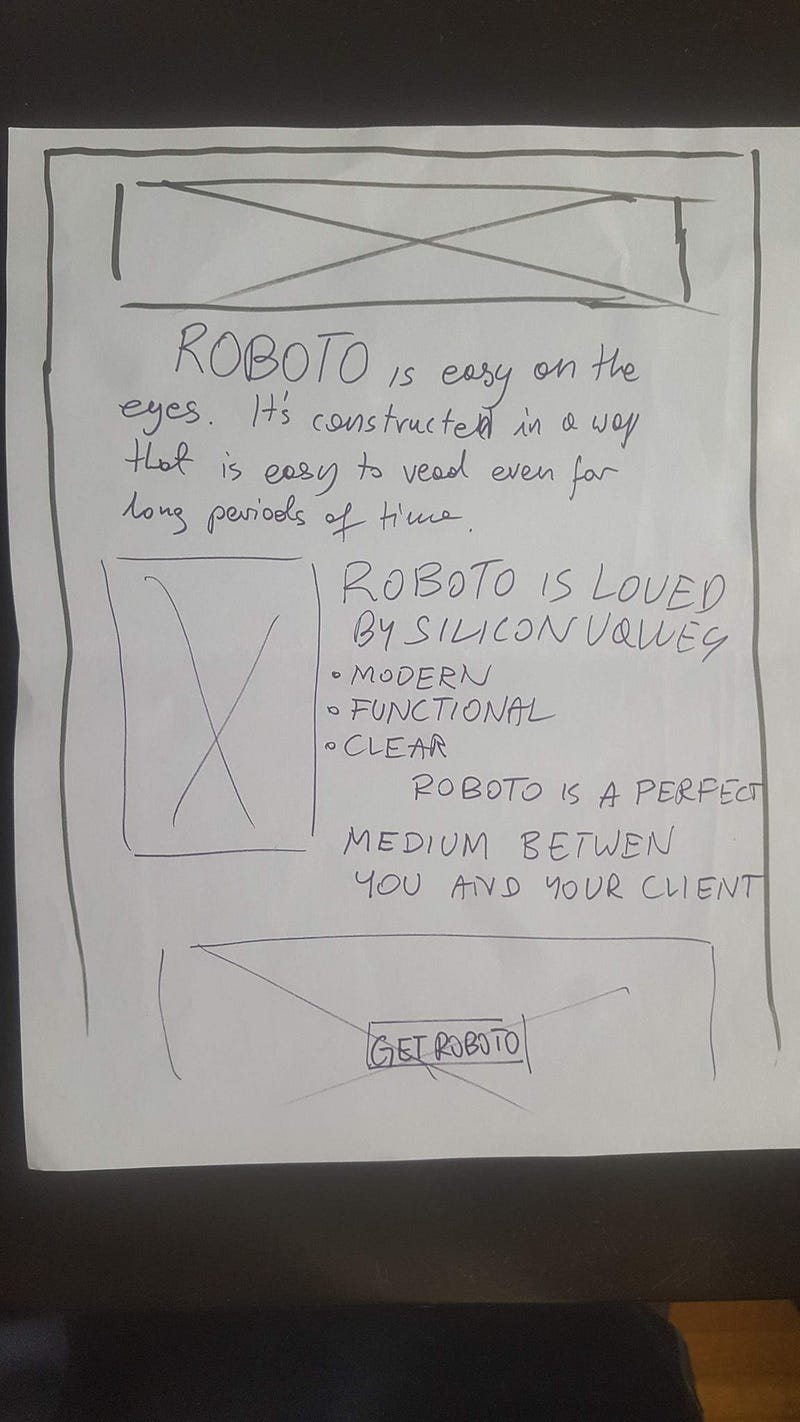 ROBOTO is easy on the
eyes. It's constructed in a way
that is easy to read even for
long periods of time.
ROBOTO IS LOVED
BY SILICON VALLEY
• MODERN
• FUNCTIONAL
• CLEAR
ROBOTO IS A PERFECT
MEDIUM BETWEN
YOU AND YOUR CLIENT
GET ROBOTO